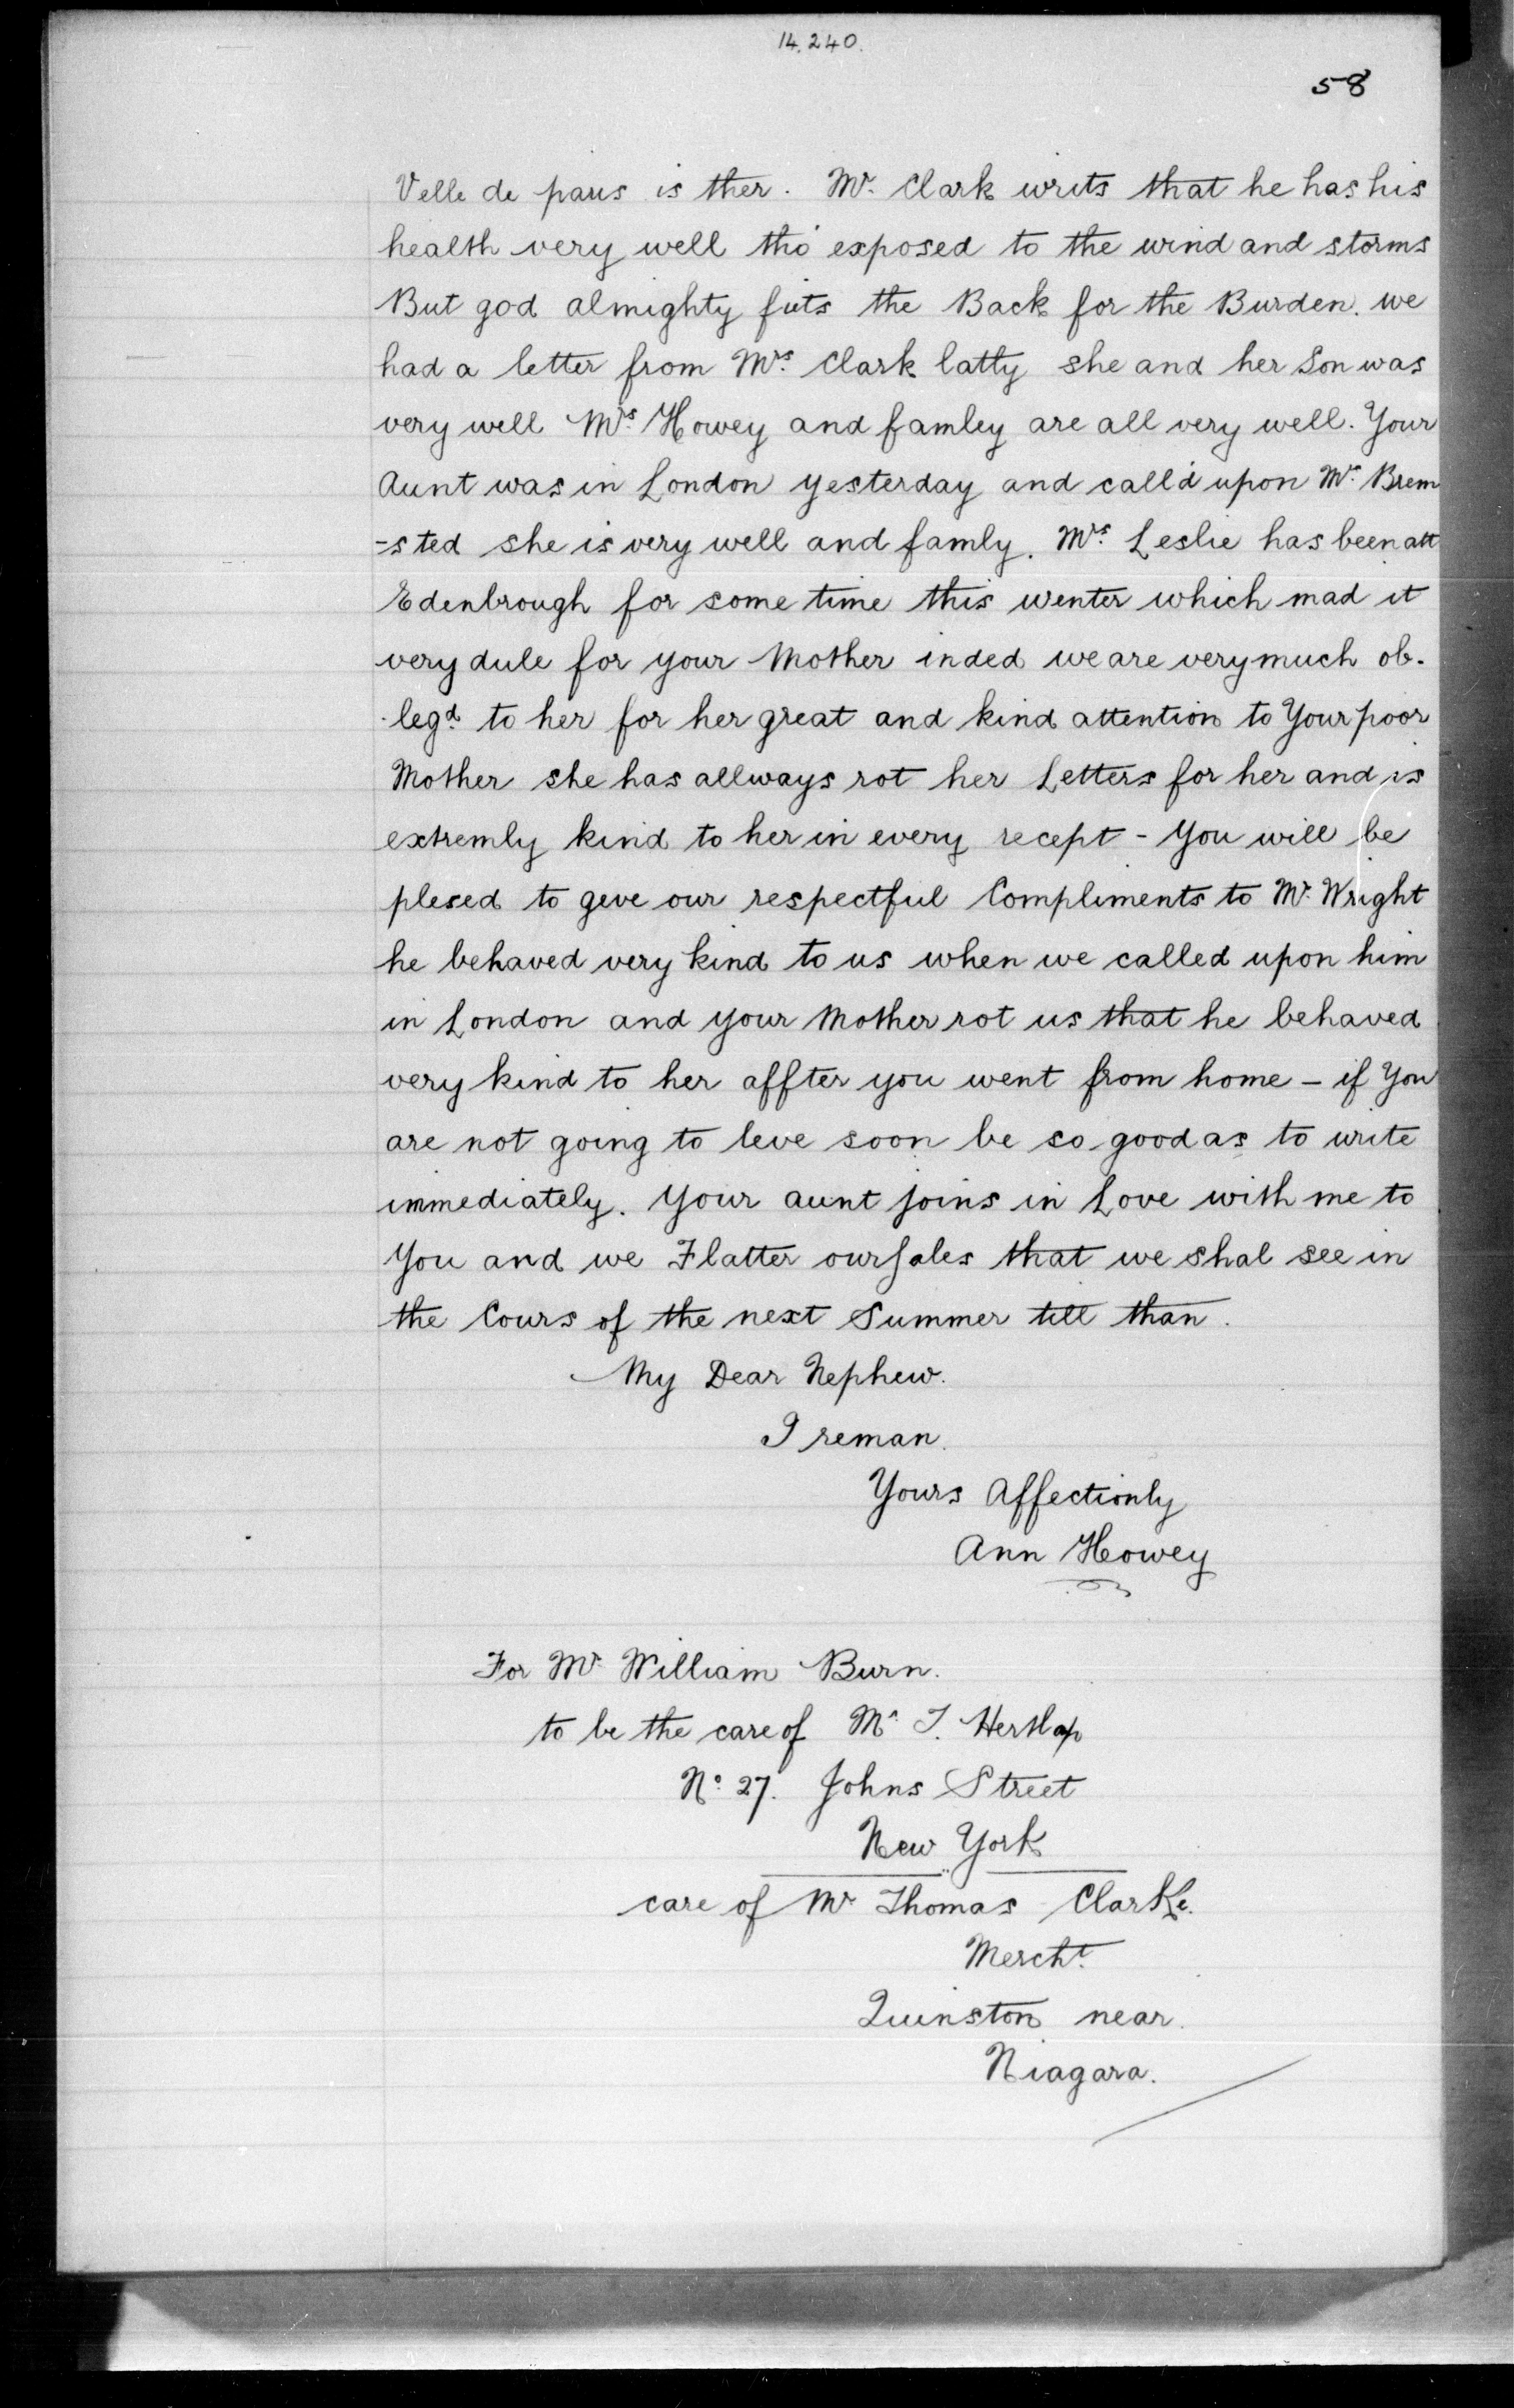 14.240.
58
Velle de paris is ther. Mr. Clark writs that he has his
health very well tho' exposed to the wind and storms
But god almighty fits the Back for the Burden. we
had a letter from Mrs. Clark latty she and her Son was
very well Mrs. Howey and famley are all very well. Your
Aunt was in London yesterday and call'd upon Mrs. Brem
-sted she is very well and famly. Mrs. Leslie has been att
Edenbrough for some time this wenter which mad it
very dule for your Mother inded we are very much ob-
-legd. to her for her great and kind attention to Your poor
Mother she has allways rot her Letters for her and is
extremly kind to her in every recept - You will be
plesed to geve our respectful Compliments to Mr. Wright
he behaved very kind to us when we called upon him
in London and your Mother rot us that he behaved
very kind to her affter you went from home - if You
are not going to leve soon be so good as to write
immediately. Your aunt joins in Love with me to
You and we Flatter oursales that we shal see in
the Cours of the next Summer till than.
My Dear Nephew.
I reman.
Yours Affectionly
Ann Howey
For Mr. William Burn.
to be the care of Mr. T.
No. 27. Johns Street
New York
care of Mr Thomas Clarke.
Mercht.
Quinston near.
Niagara.